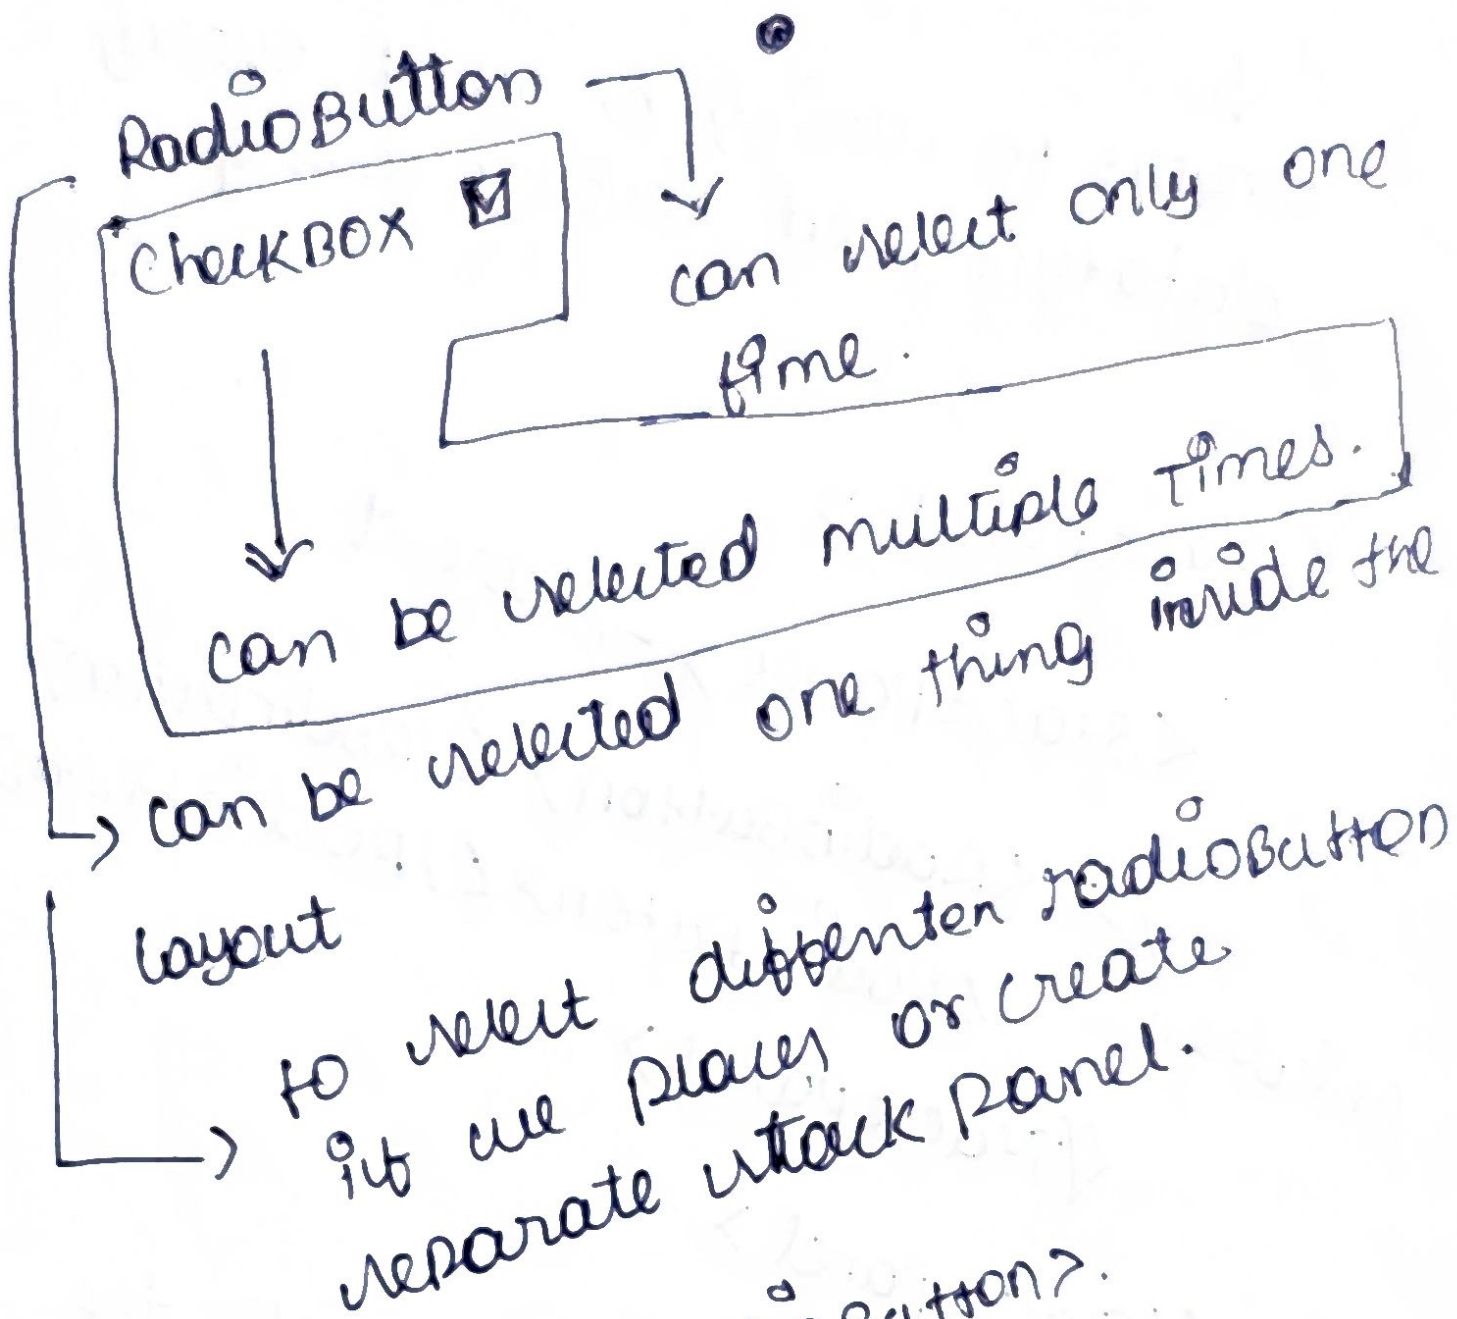 RadioButton
CheckBOX
can select only one
time.
can be selected multiple times.
can be selected one thing inside the
layout
to select diffenten radioButton
if we places or create
separate stack panel.
Button>.